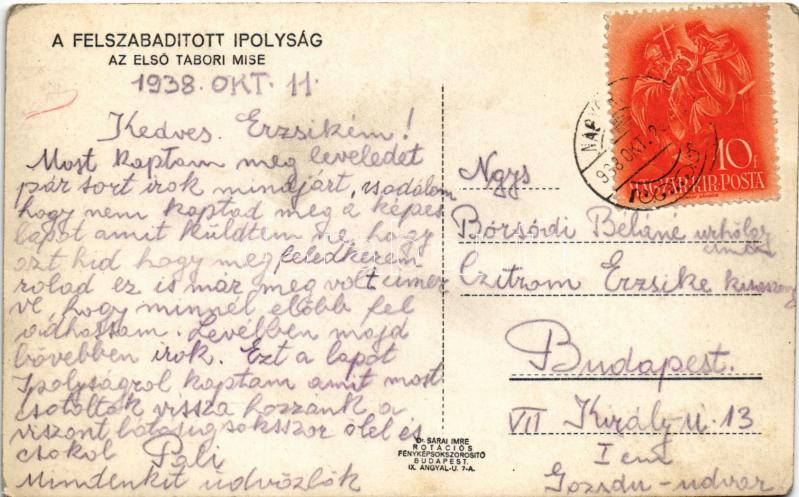 A FELSZABADITOTT IPOLYSÁG
AZ ELSŐ TABORI MISE
1938. OKT. 11.
Kedves Erzsikém!
Most kaptam meg leveledet
pár sort irok mindjárt, csodálom
hogy nem kaptad meg a képes
lapot amit küldtem ne hogy
azt hid hogy megfeledkezem
rolad ez is már meg volt cimez
ve, hogy minnél előbb fel
adhassam. Levélben majd
bővebben irok. Ezt a lapot
Ipolyságrol kaptam amit most
csatoltak vissza hozzánk a
viszont látásig sokszor ölel és
csokol Pali
Mindenkit üdvözlök
NAGY
938 OKT.
10 f
MAGYAR KIR. POSTA
Ngys
Borsódi Béláné urhölgy
cimén
Czitrom Erzsike kisasszony
Budapest.
VII Király u. 13
I em
Gozsdu-udvar
Dr SÁRAI IMRE
ROTÁCIÓS
FÉNYKÉPSOKSZOROSITÓ
BUDAPEST.
IX. ANGYAL-U. 7-A.